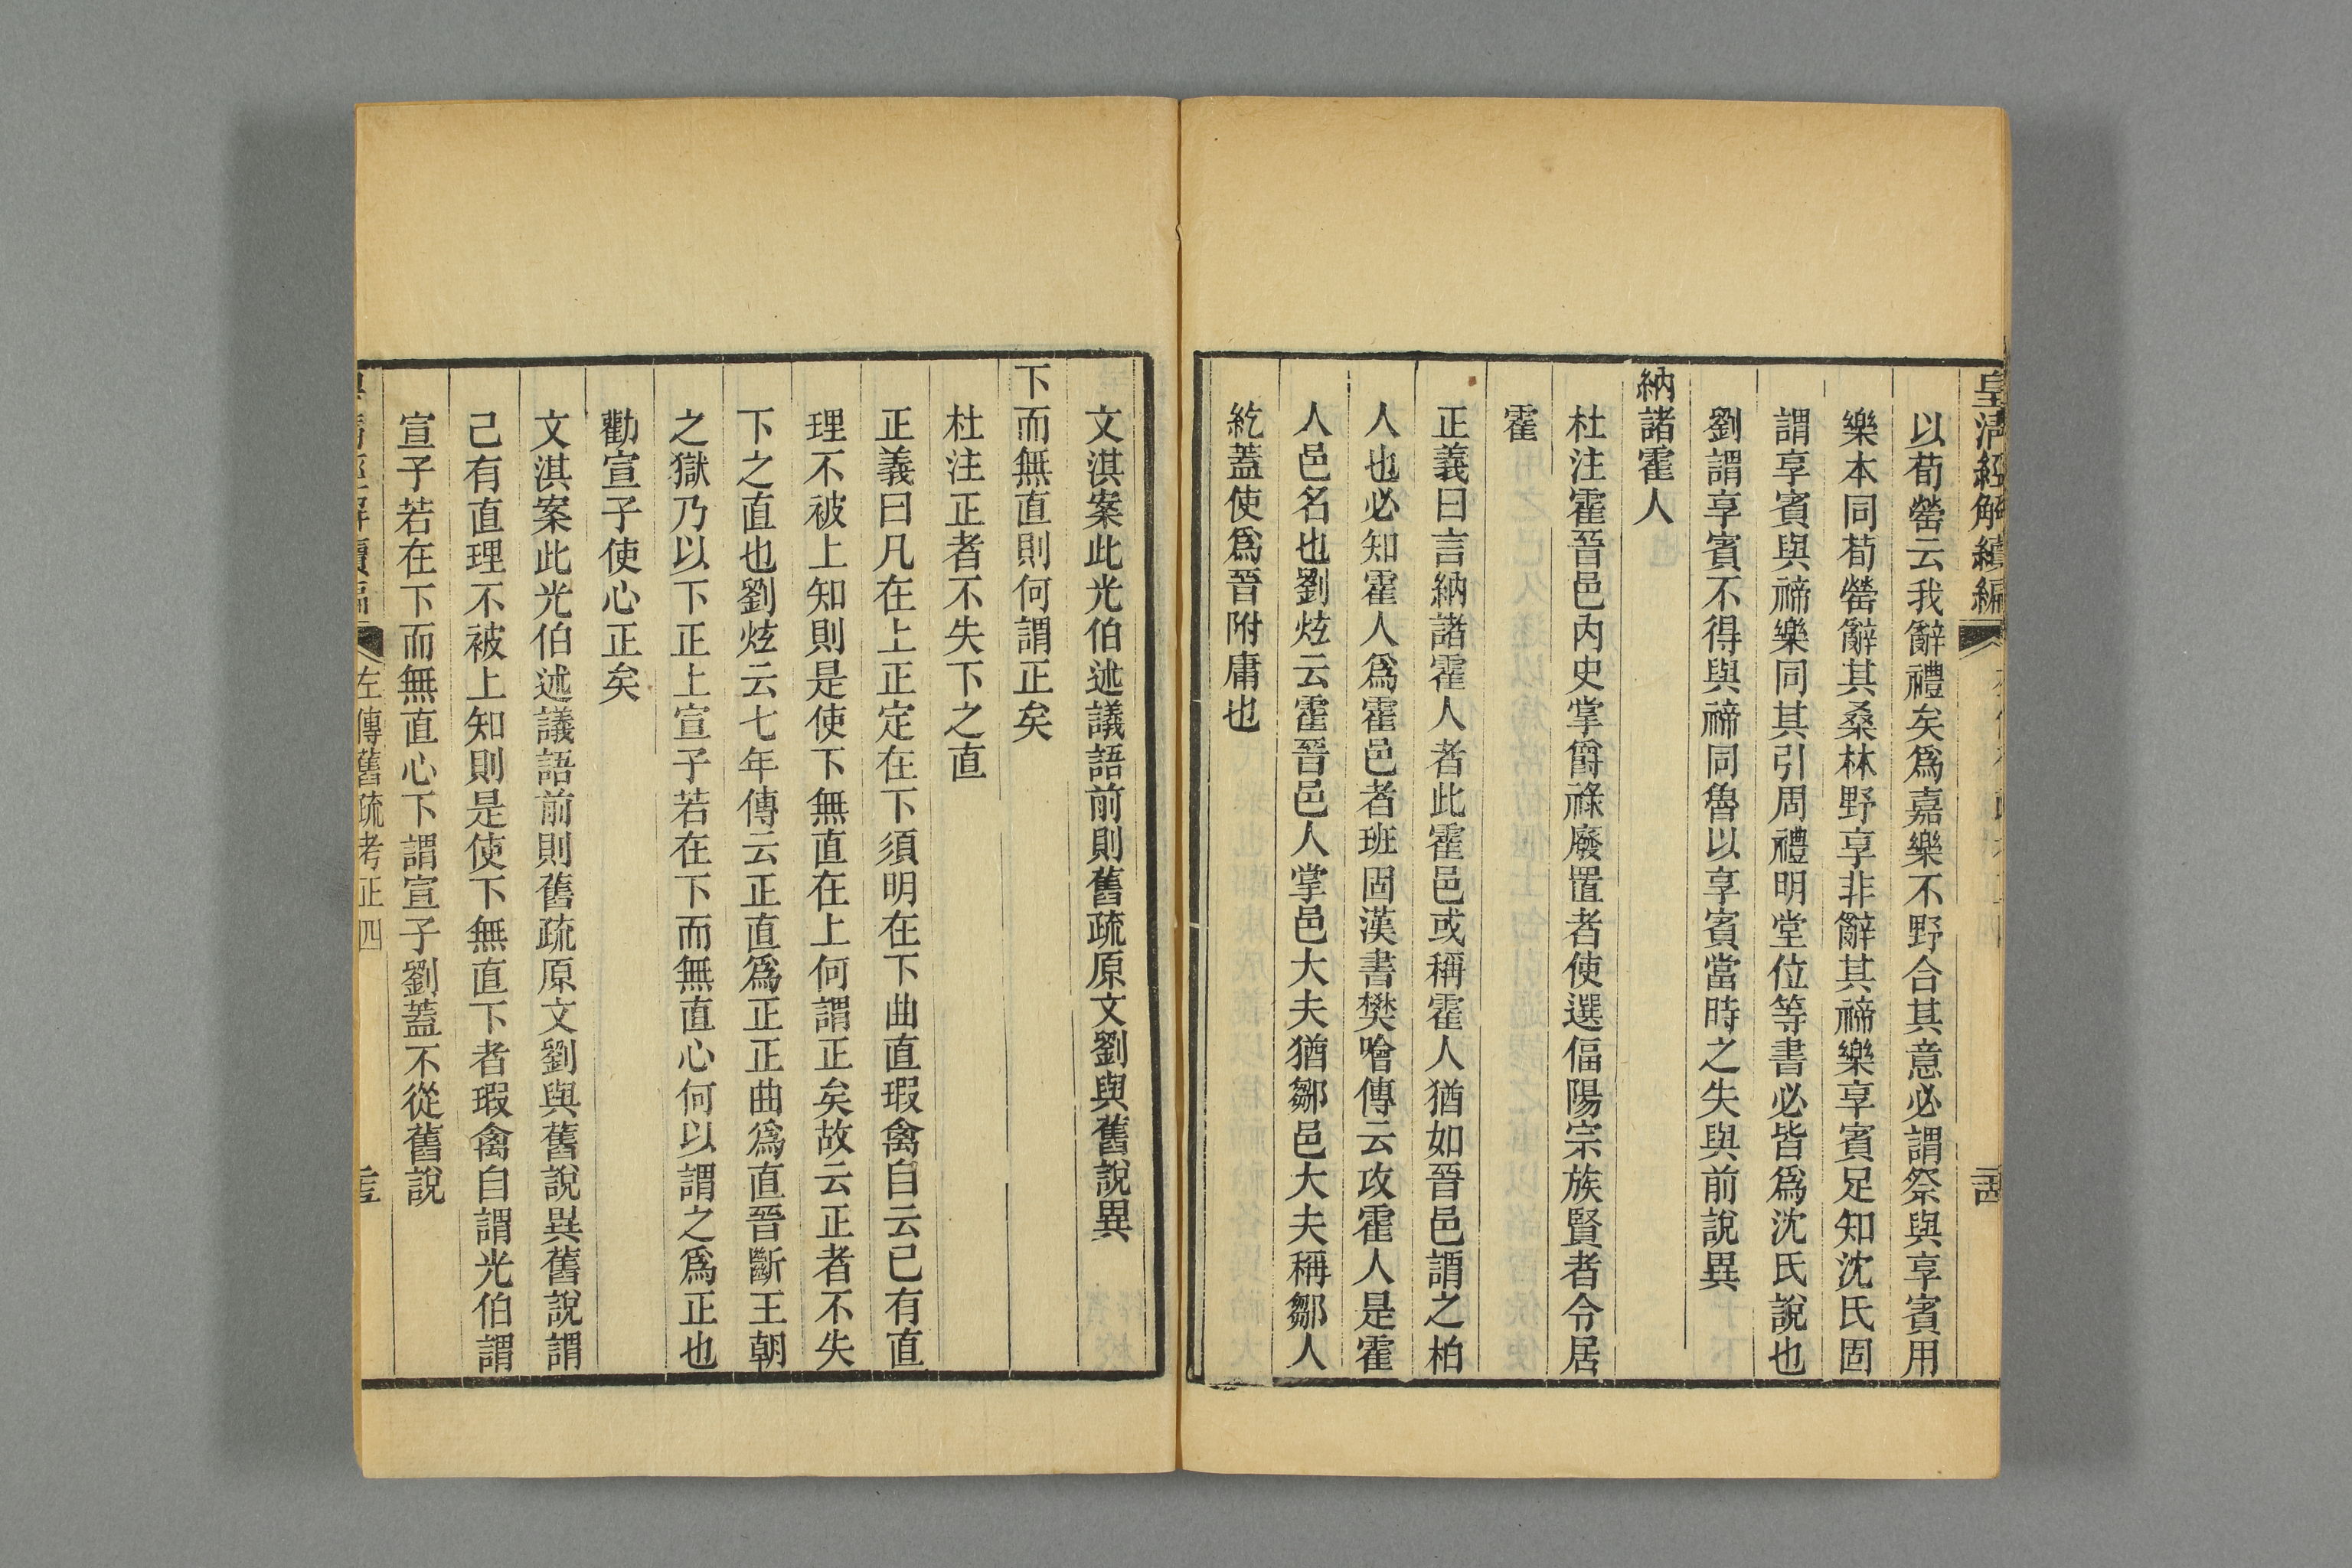 皇清經解續編
以荀罃云我辭禮矣爲嘉樂不野合其意必謂祭與享賓用
樂本同荀罃辭其桑林野享非辭其禘樂享賓足知沈氏固
謂享賓與禘樂同其引周禮明堂位等書必皆爲沈氏說也
劉謂享賓不得與禘同魯以享賓當時之失與前說異
納諸霍人
杜注霍晉邑內史掌爵祿廢置者使選偪陽宗族賢者令居
霍
正義曰言納諸霍人者此霍邑或稱霍人猶如晉邑謂之柏
人也必知霍人爲霍邑者班固漢書樊噲傳云攻霍人是霍
人邑名也劉炫云霍晉邑人掌邑大夫猶鄒邑大夫稱鄒人
紇蓋使爲晉附庸也
文淇案此光伯述議語前則舊疏原文劉與舊說異
下而無直則何謂正矣
杜注正者不失下之直
正義曰凡在上正定在下須明在下曲直瑕禽自云己有直
理不被上知則是使下無直在上何謂正矣故云正者不失
下之直也劉炫云七年傳云正直爲正正曲爲直晉斷王朝
之獄乃以下正上宣子若在下而無直心何以謂之爲正也
勸宣子使心正矣
文淇案此光伯述議語前則舊疏原文劉與舊說異舊說謂
己有直理不被上知則是使下無直下者瑕禽自謂光伯謂
宣子若在下而無直心下謂宣子劉蓋不從舊說
左傳舊疏考正四